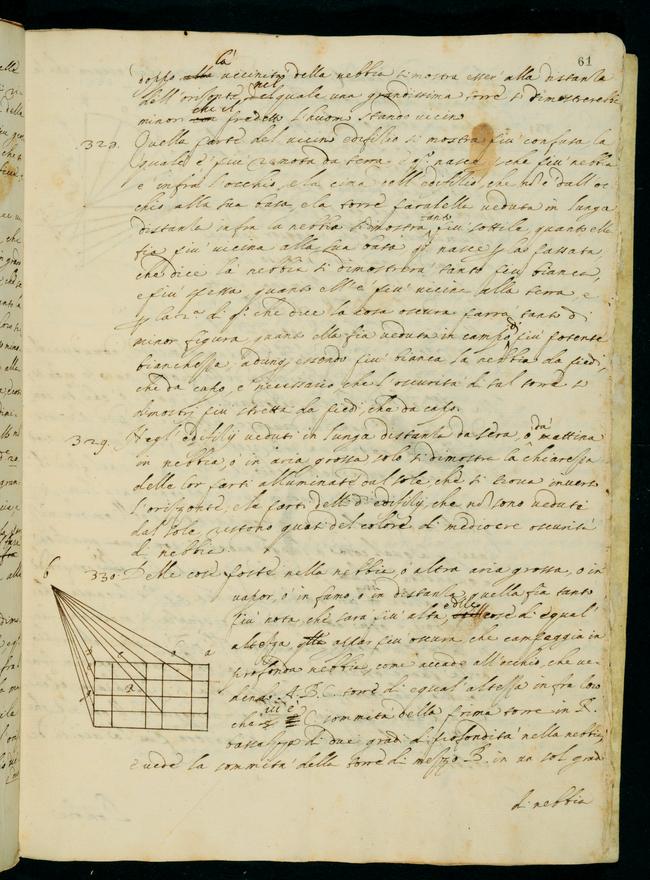 61
doppo alla la vicinità della nebbia si mostra esser alla distanza
dell'orizonte, nel quale una grandissima torre si dimostrerebbe
minor che il predetto huom stando vicin
329. Quella parte del vicin edifitio si mostra più confusa, la
quale è più remota da terra, e q.o nasce, che più nebbia
è infra l'occhio, e la cima dell'edifitio, che nõ è dall'oc
chio alla sua basa, e la torre paralella veduta in lunga
distanza infra la nebbia si mostra tanto più sottile, quanto ella
fia più vicina alla sua basa q.o nasce p la passata,
che dice la nebbia si dimostrerà tanto più bianca,
e più spessa, quanto ell'è più vicina alla terra, e
p la 2.a di q.o che dice la cosa oscura parrà tanto di
minor figura, quanto ella fia veduta in campo di più potente
bianchezza, adunq, essendo più bianca la nebbia da piedi,
che da capo, è necessario che l'oscurità di tal torre si
dimostri più stretta da piedi, che da capo.
329. Negl'edifitij veduti in lunga distanza da sera, o da mattina
in nebbia, o in aria grossa, solo si dimostra la chiarezza
delle lor parti alluminate dal sole, che si trova inverso
l'orizonte, e la parti dell'd.i edifitij, che nõ sono vedute
dal sole restono quasi del colore di mediocre oscurità
di nebbia.
330. Delle cose poste nella nebbia, o altra aria grossa, o in
vapor, o in fumo, o in distanza, quella fia tanto
più nota, che sarà più alta, e delle cose di equal'
altezza par più oscura, che campeggia in
profonda nebbia, come accade all'occhio, che ve-
dendo A. B. C. torre di equal altezza infra loro
che vede C sommità della prima torre in R.
bassezze di due gradi di profondità nella nebbia,
e vede la sommità della torre di mezzo B. in un sol grado
di nebbia